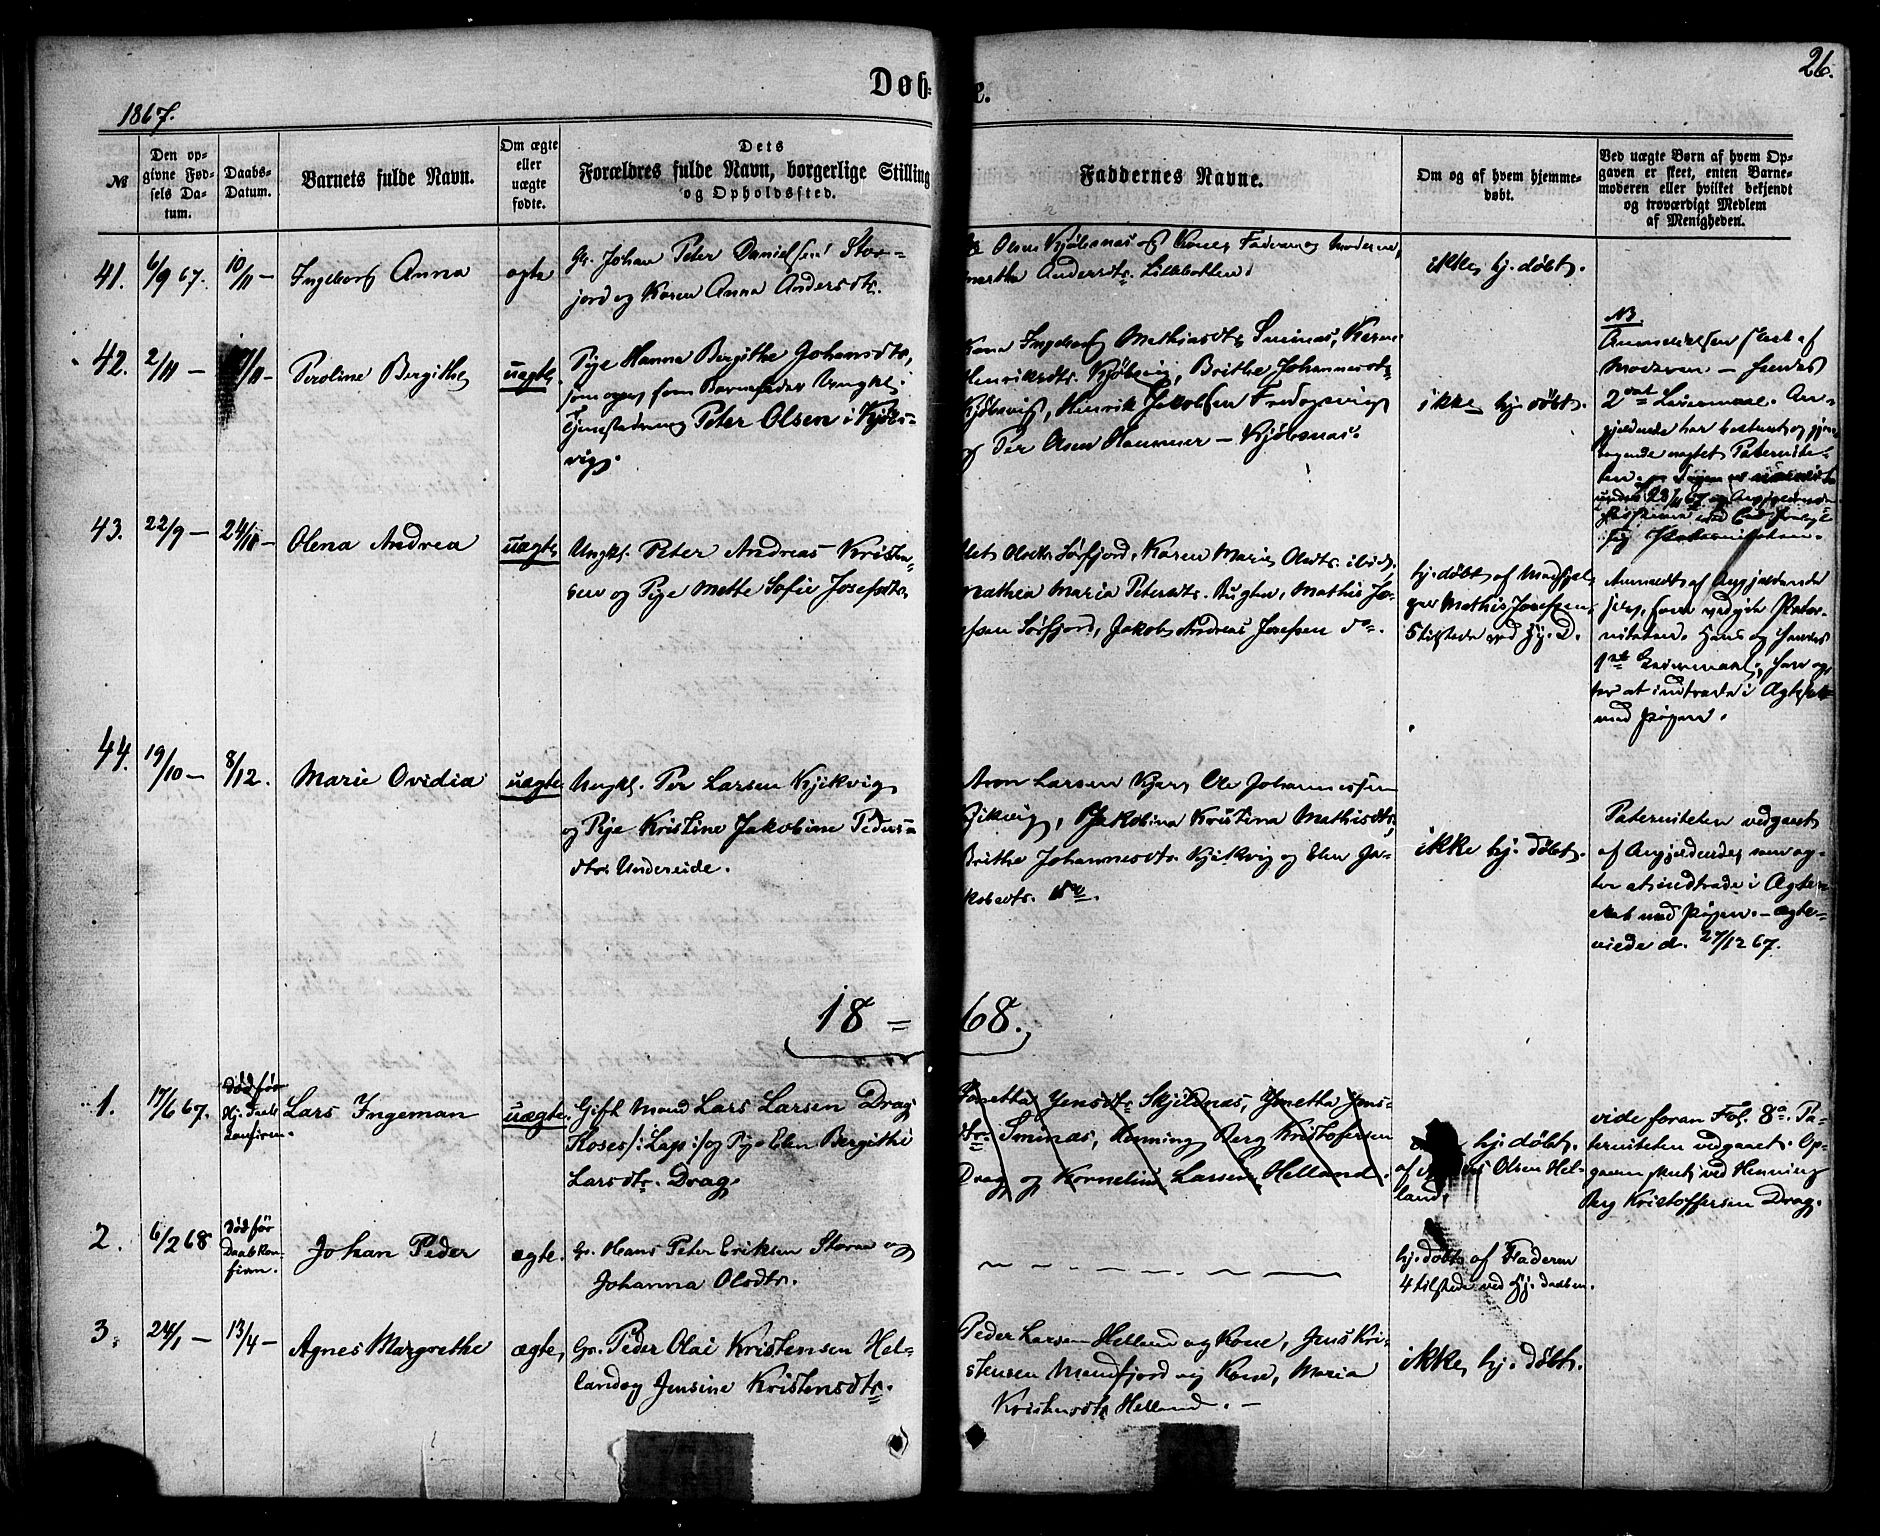 26.
Døb-
e.
1867.
№
Den op-
givne Fød-
sels Da-
tum.
Daabs-
Datum.
Barnets fulde Navn.
Om ægte
eller
uægte
fødte.
Dets
Forældres fulde Navn, borgerlige Stilling
og Opholdssted.
Faddernes Navne.
Om og af hvem hjemme-
døbt.
Ved uægte Børn af hvem Op-
gaven er skeet, enten Barne-
moderen eller hvilket bekjendt
og troværdigt Medlem
af Menigheden.
41. 6/9 67. 10/11 - Ingeborg Anna ægte
Gr. Johan Peter Danielsen Stor-
jord og Karen Anna Andersdtr.
Olsen Kjøbsnæs og Kone, Faderen og Moderen,
Martha Andersdtr. Lillebotten
ikke hj. døbt.
42. 2/11 - 17/11 - Peroline Bergithe uægte
Pige Hanna Bergithe Johansdtr,
som opgav som Barnefader Ungkl.
Peter Olsen i Kjøbs-
vig.
Kone Ingeborg Mathiasdtr. Sminæs, Karen
Henriksdtr. Kjøbsvig, Brithe Johannesdtr.
Kjøbsvig, Henrik Jakobsen
og Per Olsen Hammer - Kjøbsnæs.
ikke hj. døbt.
NB.
Anmeldelsen skeet af
Moderen - hendes
2det Leiermaal. An-
gjældende har bestemt og gjen-
tagende nægtet Paternite-
ten
43. 22/9 - 24/11 - Olena Andrea uægte
Ungkl. Peter Andreas Kristen-
sen og Pige Mette Sofie Josefsdtr.
Olsdtr. Sørfjord, Karen Marie Olsdtr. ibid,
Mathea Maria Petersdtr. Bugten, Mathis Jo-
sefsen Sørfjord, Jakob Andreas Josefsen do.
hj. døbt af Medhjæl-
per Mathis Josefsen
5 tilstede ved Hj. D.
Anmeldt af Angjældende
selv, som vedgik Pater-
niteten. Hans og hendes
1ste Leiermaal, han ag-
ter at indtræde i Ægteskab
med Pigen.
44. 19/10 - 8/12. Marie Ovidia uægte
Ungkl. Per Larsen Kjikvig
og Pige Kristine Jakobine Peders-
dtr. Undereide.
Aron Larsen Kjær, Ole Johannessen
Kjikvig, Jakobina Kristina Mathisdtr,
Brithe Johannesdtr. Kjikvig og Elen Ja-
kobsdtr. do.
ikke hj. døbt.
Paterniteten vedgaaet
af Angjældende, som ag-
ter at indtræde i Ægte-
skab med Pigen. - ægte-
viede d. 27/12 67.
18 - 68.
1. 17/6 67. død før
Hj. Daabs
Konfirm.
Lars Ingeman uægte.
Gift Mand Lars Larsen Drag
Roses /: Lap :/ og Pige Elen Bergithe
Larsdtr. Drag.
Jonetta Jensdtr. Skjelnæs, Jonetta Jens-
dtr. Sminæs, Henning Berg Kristofersen
Drag og Kornelius Larsen Helland.
hj. døbt.
af Olsen Hel-
land.
vide foran Fol. 8a. Pa-
terniteten vedgaaet. Op-
gaven skeet ved Henning
Berg Kristoffersen Drag.
2. 6/2 68 død før
Daabskon-
firm.
Johan Peder ægte.
Gr. Hans Peter Eriksen Storaa og
Johanna Olsdtr.
hj. døbt af Faderen
4 tilstede ved Hj. daaben.
3. 24/1 - 13/4 - Agnes Margrethe ægte,
Gr. Peder Olai Kristensen Hel-
land og Jensine Kristensdtr.
Peder Larsen Helland og Kone, Jens Kri-
stensen Mandfjord og Kone, Maria
Kristensdtr. Helland. -
ikke hj. døbt.